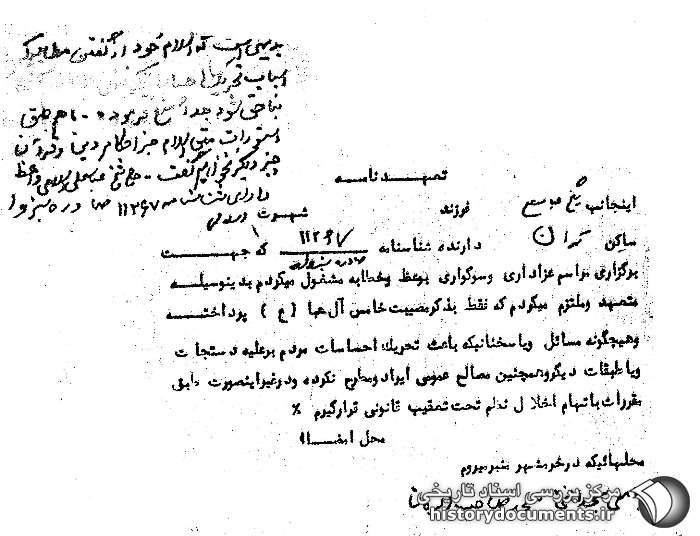 بدیهی است که اسلام خود از گفتن مطالبی که
اسباب تحریک
ناراحتی شود جداً منع فرموده - ما هم طبق
دستورات متین اسلام جز احکام دین و قرآن
چیز دیگر نخواهیم گفت - شیخ عباسعلی اسلامی واعظ
دارای شناسنامه ۱۱۲۶۷ صادره سبزوار
تعهدنامه
اینجانب شیخ عباسعلی فرزند
شهرت اسلامی
ساکن تهران دارنده شناسنامه ۱۱۲۶۷ که جهت
صادره سبزوار
برگزاری مراسم عزاداری وسوگواری بوعظ وخطابه مشغول میگردم بدینوسیله
متعهد وملتزم میگردم که فقط بذکرمصیبت خامس آل عبا (ع) پرداخته
وهیچگونه مسائل ویاسخنانیکه باعث تحریک احساسات مردم برعلیه دستجات
ویاطبقات دیگروهمچنین مصالح عمومی ایراد ومطرح نکرده ودرغیراینصورت طبق
مقررات باتهام اخلال نظم تحت تعقیب قانونی قرارگیرم ٪
محل امضاء
محلهائیکه درخرمشهر منبرمیروم
مرکز بررسی اسناد تاریخی
historydocuments.ir